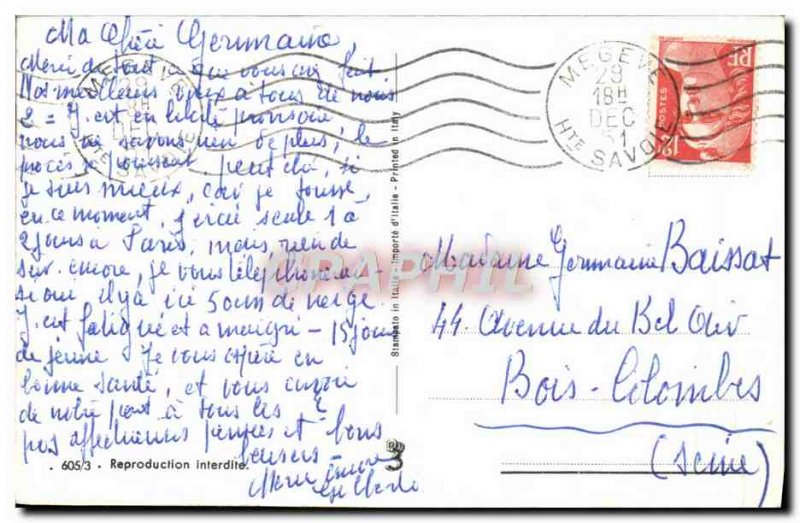 Ma Chère Germaine,
Merci de tout ce que vous avez fait
Nos meilleurs vœux à tous de nous
2 = J. est en liberté provisoire
nous ne savons rien de plus, le
procès se poursuit, peut être, si
je suis mieux, car je tousse,
en ce moment, j'irai seule 1 à
2 jours à Paris, mais rien de
sûr encore, je vous téléphonerai
si oui, il y a ici 50 cms de neige
J. est fatigué et a maigri - 15 jours
de jeûne Je vous espère en
bonne santé, et vous envoie
de notre part à tous les
pas affectueuses pensées et bons
baisers -
Merci encore
605/3 . Reproduction interdite.
Stampato in Italia - Importé d'Italie - Printed in Italy
3
MEGÈVE
29
18H
DEC
51
HTE SAVOIE
RF
POSTES
12F
Madame Germaine Baissat
44 Avenue du Bel Air
Bois-Colombes
(Seine)
CPAPHIL